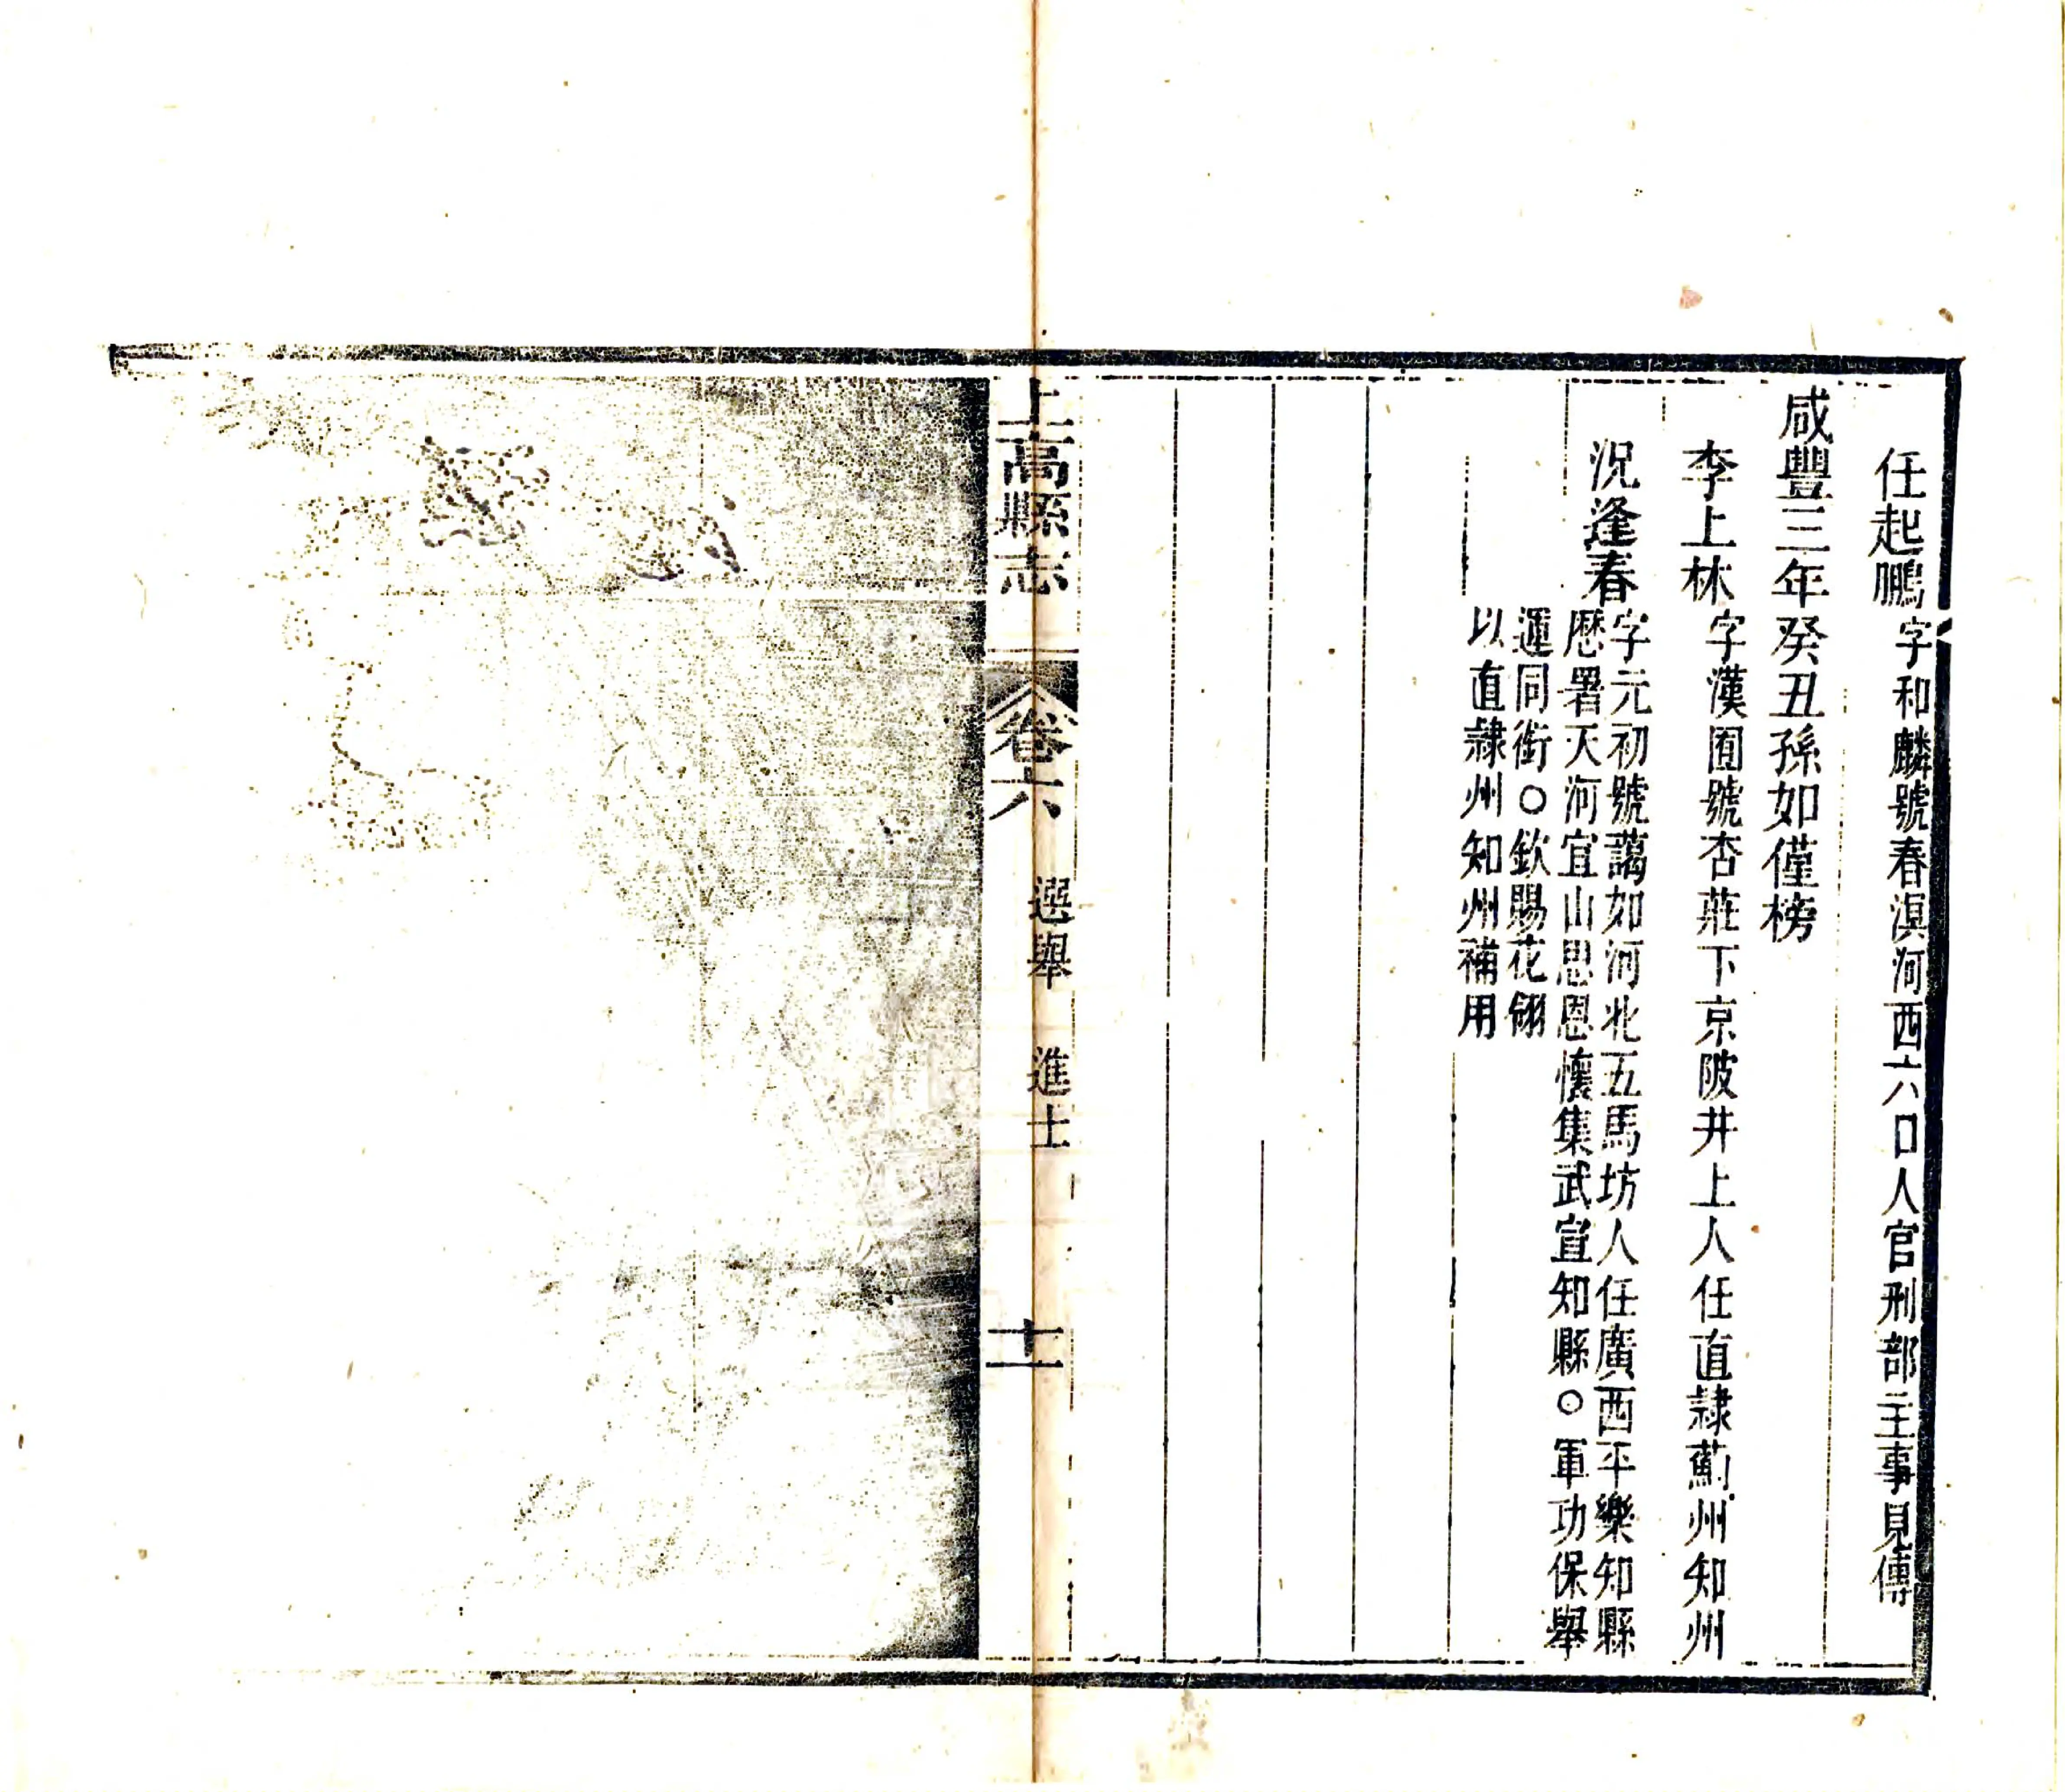 任起鵬字和麟號春溟河西六口人官刑部主事見傳
咸豐三年癸丑孫如僅榜
李上林字漢囿號杏莊下京陂井上人任直隸薊州知州
況逢春
字元初號藹如河北五馬坊人任廣西平樂知縣
歷署天河宜山思恩懷集武宣知縣○軍功保舉
運同銜○欽賜花翎
以直隸州知州補用
上高縣志
卷六
選舉
進士
十一